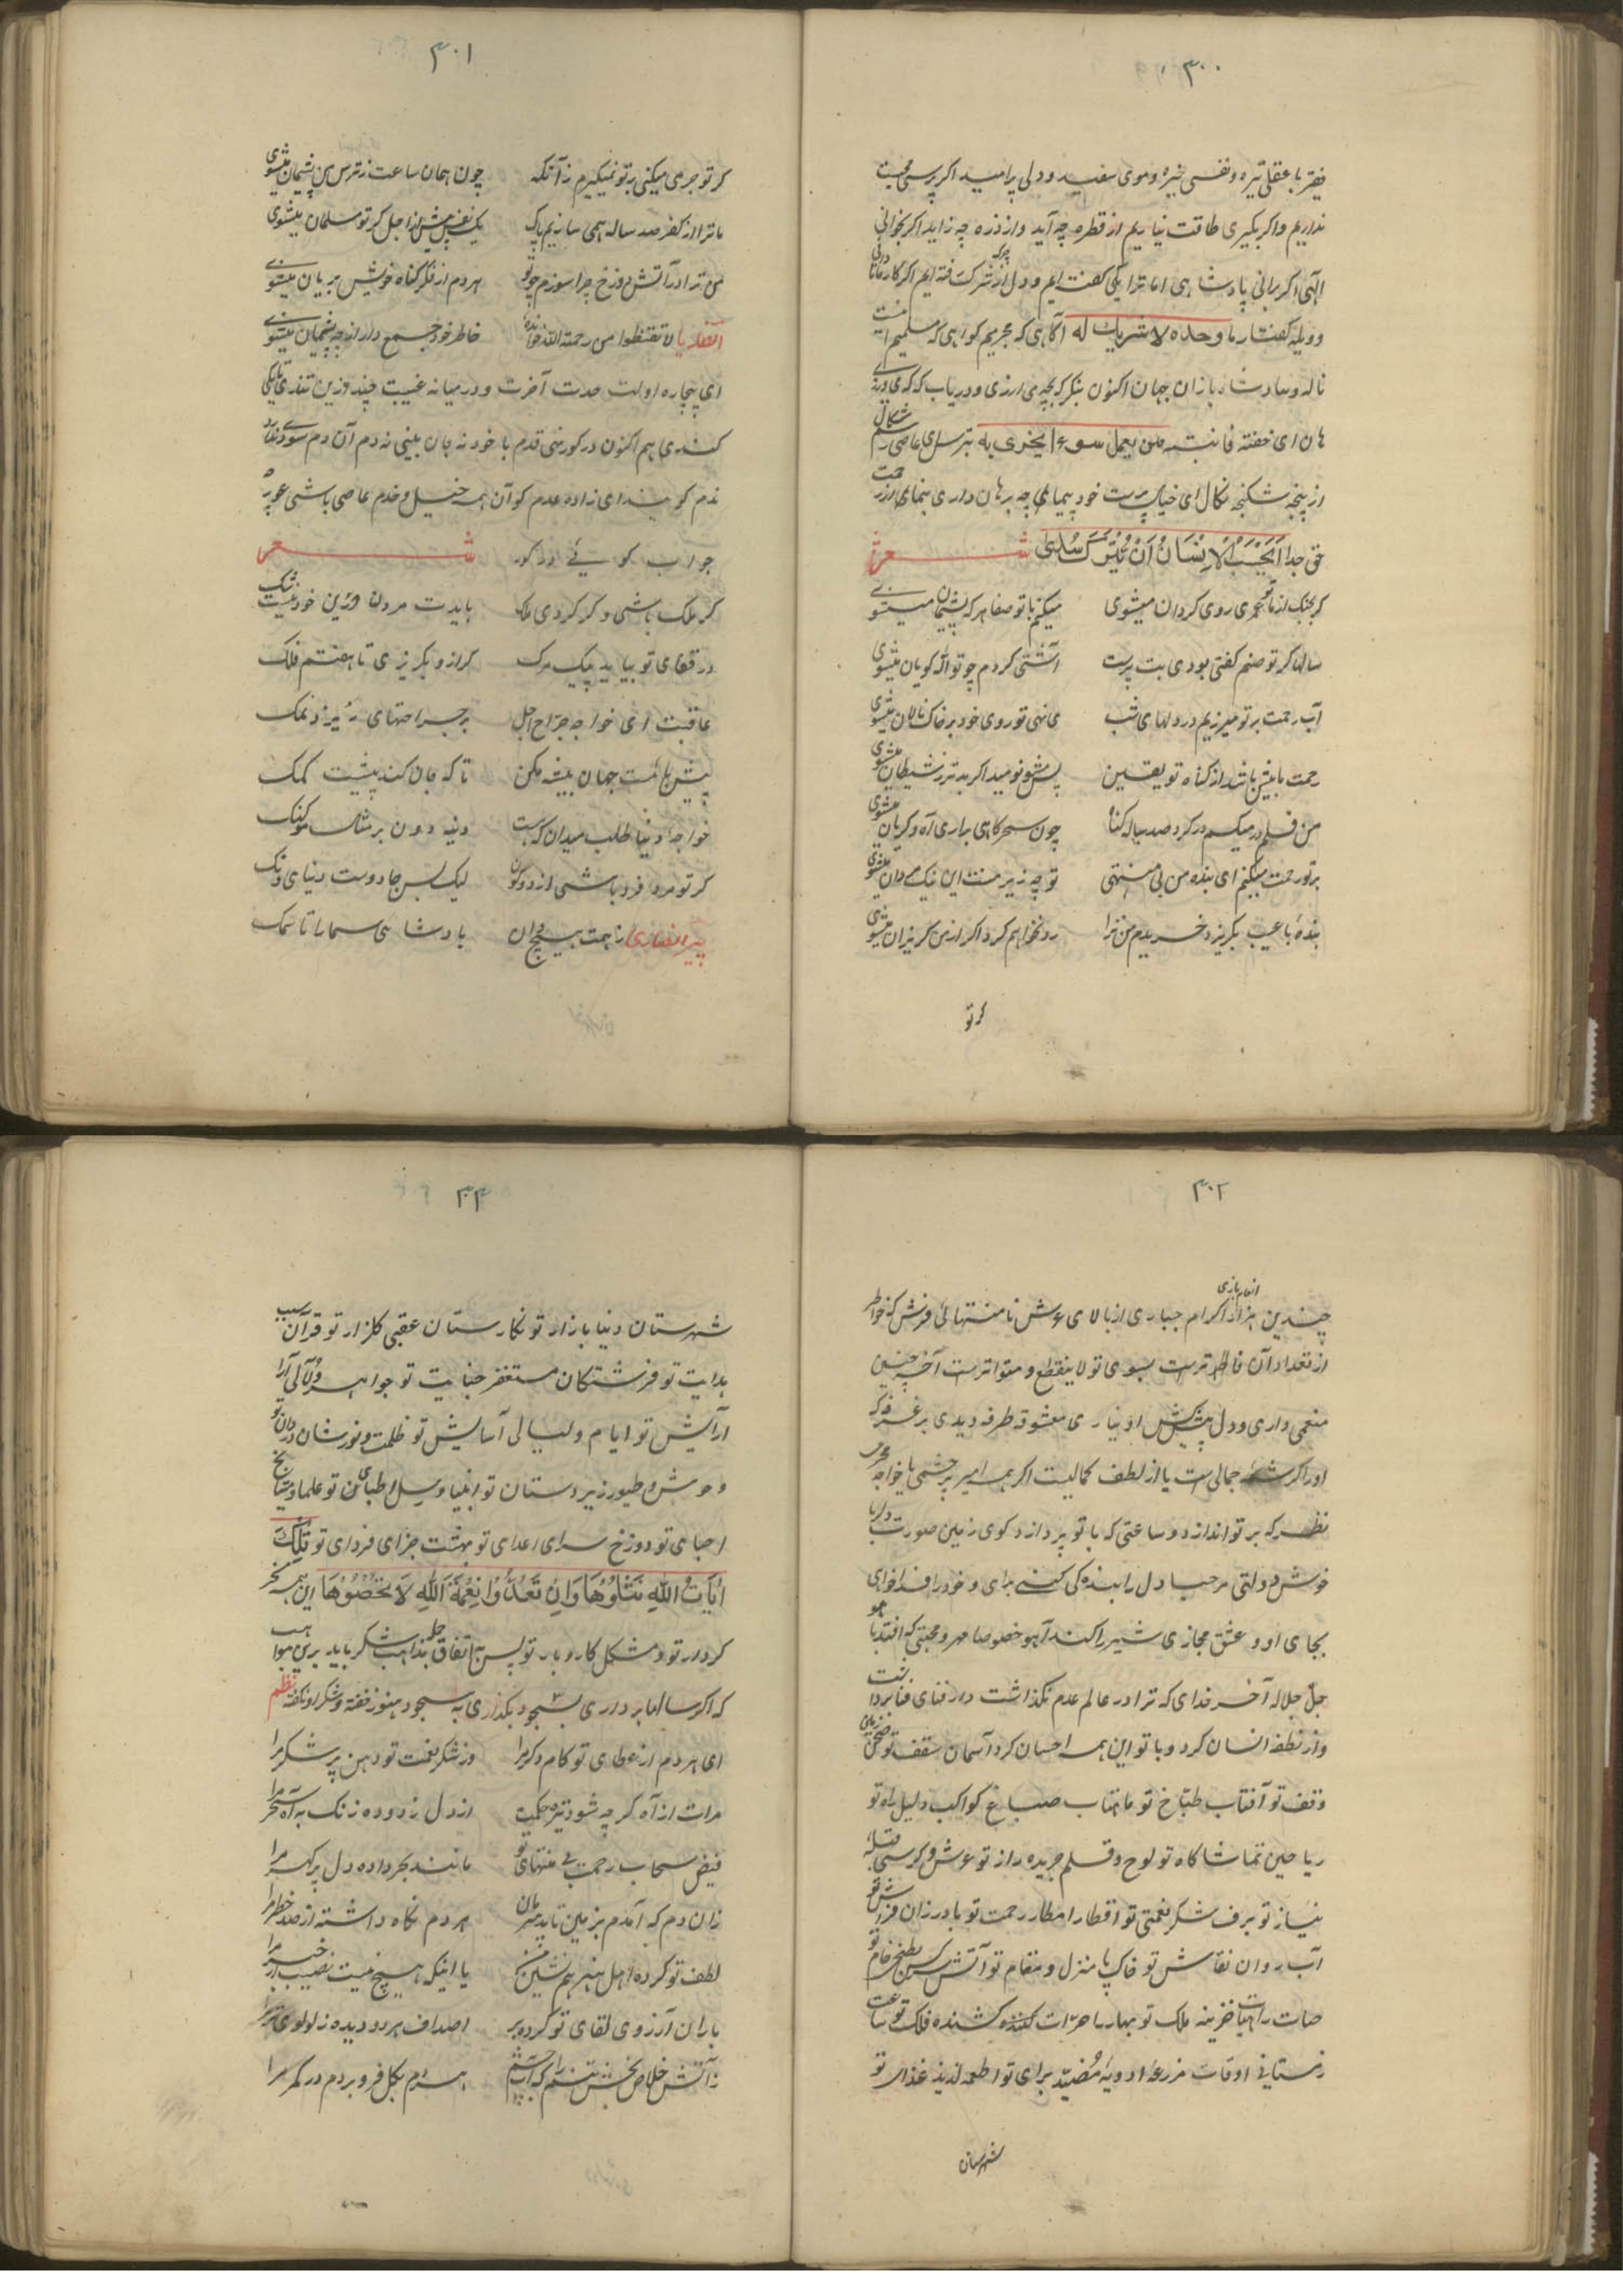 ۳۰۰
فقیر با عقلی تیره و نفسی خیره و موی سفید و دلی پر امید اکر پرسی حجت
نداریم و اکر بکیری طاقت نیاریم از قطره چه آید و از ذره چه زاید اکر بخوانی
الهی اکر برانی پادشاهی اما ترا یکی کفته ایم و دل از شرک رفته ایم اکر کار ما
و ویله کفتار ما وحده لا شریک له آکاهی که مجریم کواهی که مسلمیم
ناله و سادشاه بازان جهان اکنون بنکر که بچه می ارزی و دریاب که که می ورزی
هان ای خفته فانتبه من یعمل سوء ایجزی به بترس ای عاصی
از پنجه شکنجه نکال ای خیال پرست خود پیمای چه برهان داری بنمای
حق جدا ایحسب الانسان ان یترک سدی شعر
کر بجنک از ما تو محمدی روی کردان میشوی میکنم با تو صفا هر که پشیمان میشوی
سالها کر تو صنم کفتی بودی بت پرست آشتی کردم چو تو الله کویان میشوی
آب رحمت بر تو میریزم در دلهای شب می نهی تو روی خود بر خاک نالان میشوی
رحمت ما بیش باشد از کناه تو یقین پس مشو نومید اکر بدتر ز شیطان میشوی
من قلم در میکشم در کرد صد ساله کناه چون سحرکاهی براری آه و کریان میشوی
بر تو رحمت میکنم ای بنده من بی منتهی تو چه زیر منت این نیک مردان میشوی
بنده با عیب بکریزد خریدم من ترا رد نخواهم کرد اکر از من کریزان میشوی
کر تو
۳۰۱
کر تو جرمی میکنی بر تو نمیکیرم زآنکه چون همان ساعت ز ترس من پشیمان میشوی
ما ترا از کفر صد ساله همی سازیم پاک یک نفس پیش از اجل کر تو مسلمان میشوی
من ترا در آتش دوزخ چرا سوزم چو تو هر دم از فکر کناه خویش بریان میشوی
انصاریا لا تقنطوا من رحمة الله خوانده خاطر خود جمع دار از چه پشیمان میشوی
ای بیچاره اولت حدت آخرت و در میانه غیبت چند ازین تندی
کندی هم اکنون در کور نهی قدم با خود نه جان بینی نه دم آن دم سودی ندارد
ندم کویند ای زاده عدم کو آن همه خیل و خدم عاصی باشی عور
جواب کویی از کور شعر
کر ملک باشی و کر کردی ملک بایدت مردن ازین خود نیست شک
در قفای تو بیاید پیک مرک کر ازو بکریزی تا هفتم فلک
عاقبت ای خواجه جراح اجل بر جراحتهای ریزد نمک
پیش باشت جهان بیشه مکن تا که جان کند پیشت کمک
خواجه دنیا طلب میدان که هست دنیه دون بر مثال
کر تو مرد فرد باشی از دو کون لیک بس جادوست دنیای دنک
پیر انصاری ز اهمت هیچ دان پادشاهی سما را تا سمک
۳۰۲
انعام باری
چندین هزار اکرام جباری از بالای عرش تا منتهائی فرش که خواطر
از تعداد آن فاطر ترست بسوی تو لا ینقطع و متواترست آخر چنین
منعمی داری و دل پیشکش او نیاری معشوقه طرفه دیدی بر غرفه که
او را کرشمه جمالی ست یا از لطف کمالیت اکر همه امیر بر چشمی یا خواجه
نظر که بر تو اندازد و ساعتی که با تو پردازد کوی زمین صورت
خوش دولتی مرحبا دل را بنده کی کنی برای و خود را فدا خواهی
بجای او و عشق مجازی شیر را کند آهو خصوصا مهر و محبتی که افتد با هو
جل جلاله آخر خدای که ترا در عالم عدم نکذاشت در فنای فنا بر داشت
و از نطفه انسان کرد و با تو این همه احسان کرد آسمان سقف تو زمین
وقف تو آفتاب طباخ تو ماهتاب صباغ کواکب دلیل راه تو
ریاحین تماشاکاه تو لوح و قلم جریده راز تو عرش و کرسی قبله
نیاز تو برف شکر نعمتی تو اقطار امطار رحمت تو باد رزان فراش تو
آب روان نقاش تو خاک پا منزل و مقام تو آتش مطبخ خام تو
خزینه ملک تو بهار کننده کشنده فلک تو
زمستانی اوقات مزرعه ادویه مضید برای تو اطعمه لذیذ غذای تو
شهرستان
۳۰۳
شهرستان دنیا بازار تو نکارستان عقبی کلزار تو قرآن سبب
هدایت تو فرشتکان مستغفر جنایت تو جواهر و لآلی آرا
آرایش تو ایام و لیالی آسایش تو ظلمت و نورشان دان تو
وحوش و طیور زیر دستان تو انبیا و رسل اطبای تن تو علما و مشایخ
احبای تو دوزخ سرای اعدای تو بهشت جزای فردای تو تلک
آیات الله نتلوها وان تعدوا نعمة الله لا تحصوها این همه
کردار تو و مشکل کار و بار تو پس باتفاق جمله مذاهب شکر باید برین مواهب
که اکر سالها برداری بسجود بکذاری به سجود هنوز خفته و شکر او نکفته نظم
ای هر دم از عطای تو کام دکر مرا وز شکر نعمت تو دهن پر شکر مرا
مرات از آه کر چه شود تیره حکمت از دل زدوده زنک به آه سحر مرا
فیض سحاب رحمت بی منتهای تو مانند بحر داده دل پر کهر مرا
زان دم که آمدم بزمین تا بدین زمان هر دم نکاه داشته از صد خطر مرا
لطف تو کرده اهل هنر هم نشین من با اینکه هیچ نیست نصیب از خبر مرا
باران آرزوی لقای تو کرده پر اصداف هر دو دیده ز لولوی تر مرا
ز آتش خلاص بخش تنم را که آب چشم هر دم بکل فرو بردم در کمر مرا